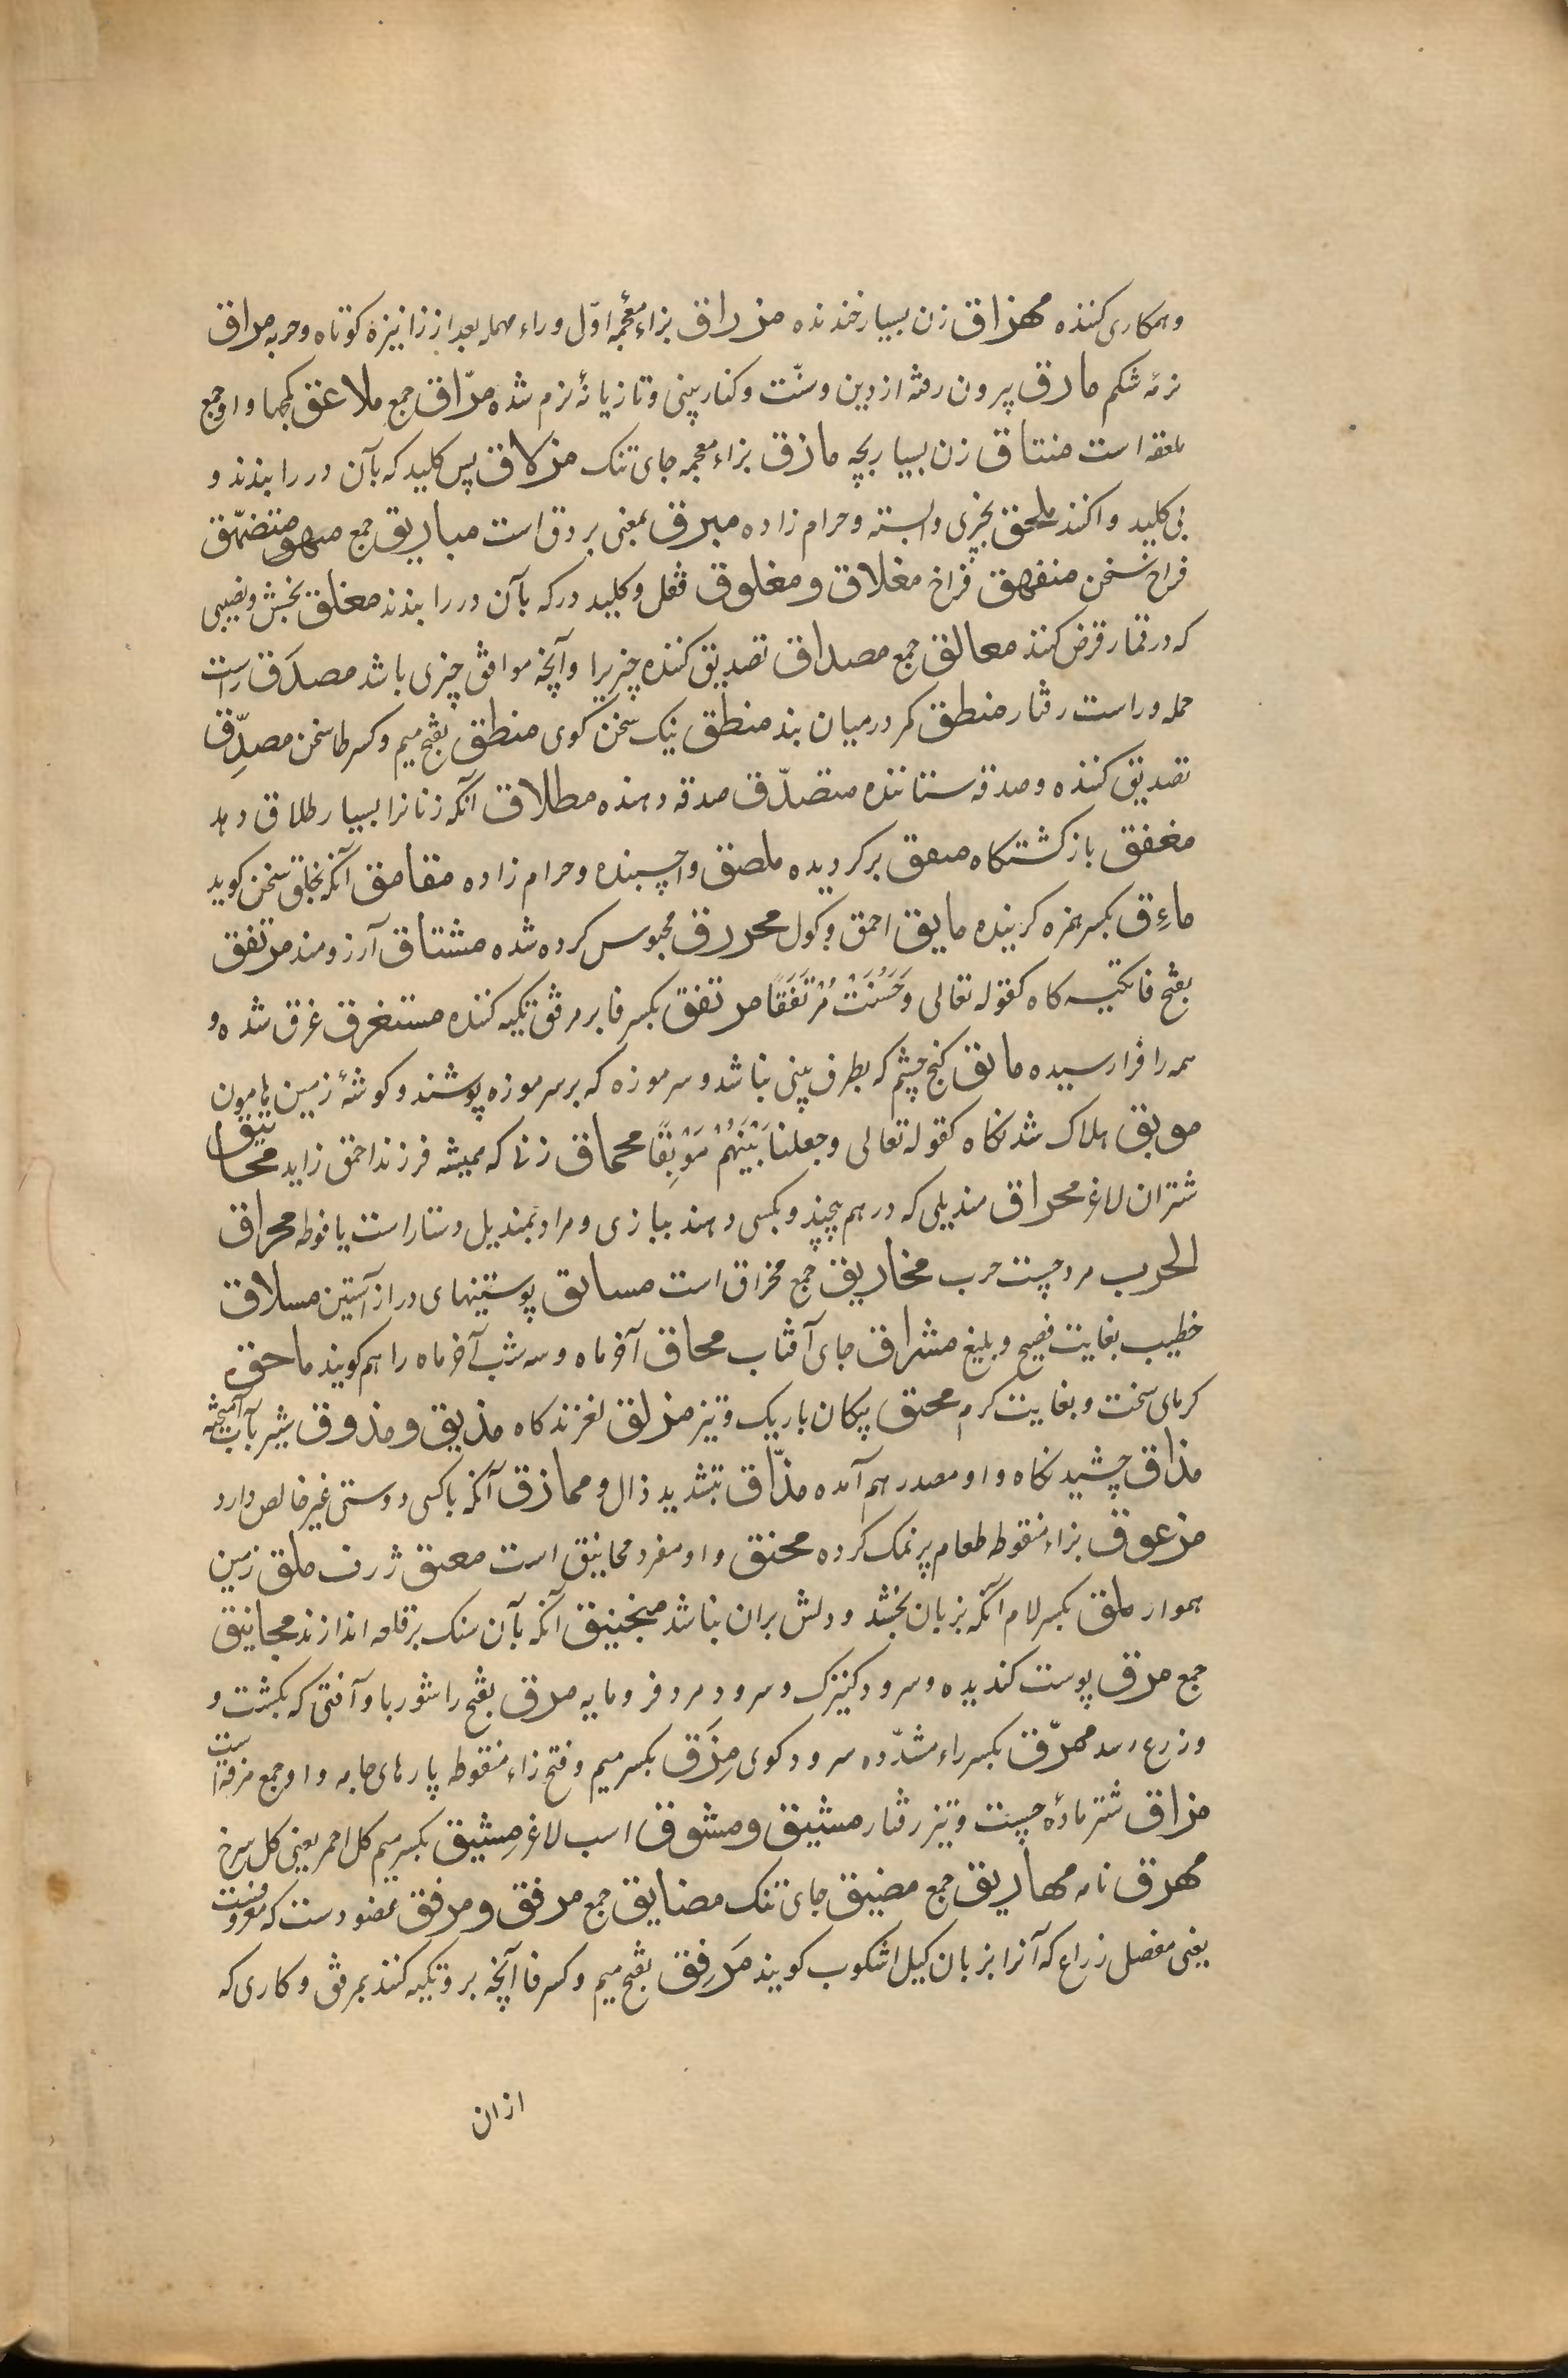 وهمکاری کننده مهزاق زن بسیار خندنده مزراق بزاء معجمۀ اوّل وراء مهمله بعد از زا نیزۀ کوتاه وحربه مراق
نرمۀ شکم مارق بیرون رفته از دین وسنّت وکنار بینی وتازیانۀ نرم شده مرّاق جمع ملاعق کمچها واو جمع
ملعقه است منتاق زن بسیار بچه مازق بزاء معجمه جای تنک مزلاق پس کلید که بآن در را بندند و
بی کلید واکنند ملحق بچیزی وابسته وحرام زاده مبرق بمعنی بروق است مباریق جمع متضمّق
فراخ سخن منفهق فراخ مغلاق ومغلوق قفل وکلید در که بآن در را بندند مغلق بخش ونصیبی
که در قمار قرض کنند معالق جمع مصداق تصدیق کننده چیزیرا وآنچه موافق چیزی باشد مصدَق راست
حمله وراست رفتار منطق کمر در میان بند منطق نیک سخن گوی منطق بفتح میم وکسر طا سخن مصدِّق
تصدیق کننده وصدقه ستاننده متصدّق صدقه دهنده مطلاق آنکه زنانرا بسیار طلاق دهد
مغفق بازکشتکاه برکردیده ملصق واچسبنده وحرام زاده مقامق آنکه بحلق سخن کوید
ماءِق بکسر همزه کرینده مایق احمق وکول محررق محبوس کرده شده مشتاق آرزومند مرتفق
بفتح فا تکیه کاه کقوله تعالی وَحَسُنَتْ مُرْتَفَقًا مرتفق بکسر فا بر مرفق تکیه کننده مستغرق غرق شده و
همه را فرا رسیده مانق کنج چشم که بطرف بینی باشد وسرموزه که بر سر موزه پوشند وکوشۀ زمین هامون
موبق هلاک شدنکاه کقوله تعالی وجعلنا بَیْنَهُمْ مَوْبِقًا محماق زنی که همیشه فرزند احمق زاید محانیق
شتران لاغر محراق مندیلی که در هم پیچند وبکسی دهند ببازی ومراد بمندیل دستار است یا فوطه محراق
الحرب مرد چست حرب مخاریق جمع مخراق است مساتق پوستینهای دراز آستین مسلاق
خطیب بغایت فصیح وبلیغ مشراق جای آفتاب محاق آخر ماه وسه شب آخر ماه را هم کویند ماحق
کرمای سخت وبغایت کرم محتق پیکان باریک وتیز مزلق لغزندکاه مذیق ومذوق شیر بآب آمیخته
مذاق چشیدنکاه واو مصدر هم آمده مذّاق بتشدید ذال ومماذق آنکه باکسی دوستی غیر خالص دارد
مزعوق بزاء منقوطه طعام پر نمک کرده محنق واو مفرد محانیق است معنق ژرف ملق زمین
هموار ملق بکسر لام آنکه بزبان بخشد ودلش بران نباشد منجنیق آنکه بآن سنک بر قلعه اندازند مجانیق
جمع مرق پوست کندیده وسرود کنیزک وسرود مرد فرومایه مرق بفتح را شوربا وآفتی که بکشت و
وزرع رسد ممرّق بکسر راء مشدّده سرود کوی مِزَق بکسر میم وفتح زاء منقوطه پارهای جامه واو جمع مزقه است
مزاق شتر مادۀ چست وتیز رفتار مشیق ومشوق اسب لاغر مِشیق بکسر میم کل احمر یعنی کل سرخ
مهرق نامه مهاریق جمع مضیق جای تنک مضایق جمع مرفق ومرفق عضو دست که معروفست
یعنی مفصل ذراع که آنرا بزبان کیل اشکوب کویند مَرفِق بفتح میم وکسر فا آنچه برو تکیه کنند بمرفق وکاری که
ازان